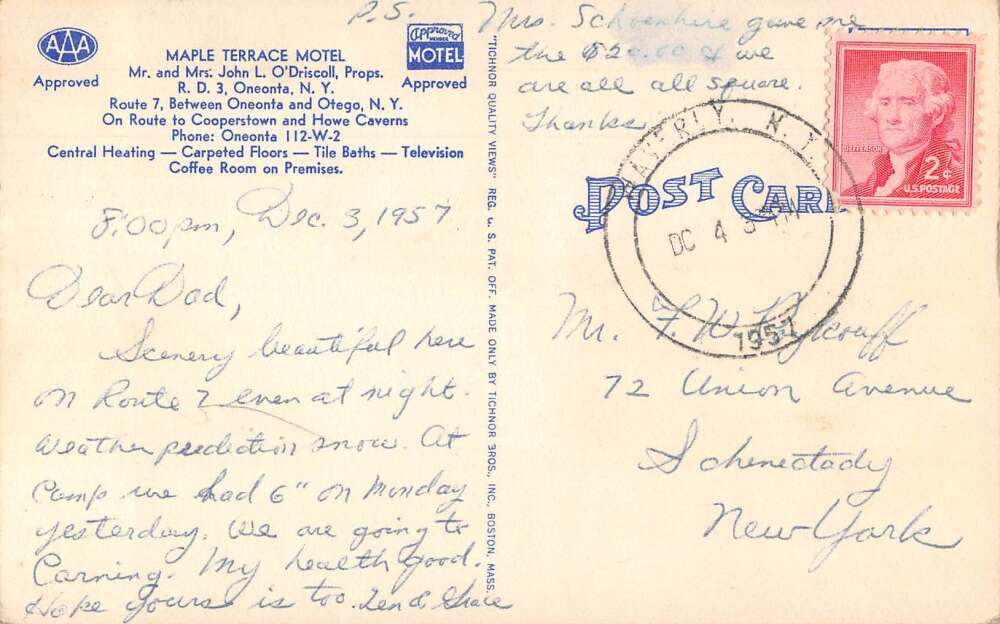 AAA
Approved
MAPLE TERRACE MOTEL
Mr. and Mrs: John L. O'Driscoll, Props.
R. D. 3, Oneonta, N. Y.
Route 7, Between Oneonta and Otego, N. Y.
On Route to Cooperstown and Howe Caverns
Phone: Oneonta 112-W-2
Central Heating — Carpeted Floors — Tile Baths — Television
Coffee Room on Premises.
Approved
MEMBER
MOTEL
Approved
8:00pm, Dec. 3, 1957
Dear Dad,
Scenery beautiful here
on Route 7 even at night.
Weather prediction snow. At
Camp we had 6" on Monday
yesterday. We are going to
Corning. My health good.
Hope yours is too. Len & Grace
"TICHNOR QUALITY VIEWS" REG. U. S. PAT. OFF. MADE ONLY BY TICHNOR BROS., INC., BOSTON, MASS.
P.S. Mrs. gave me
the & we
are all all square.
Thanks
POST CARD
JEFFERSON
2¢
U.S. POSTAGE
WAVERLY, N.Y.
DC 4
1957
Mr. F. W.
72 Union Avenue
Schenectady
New York